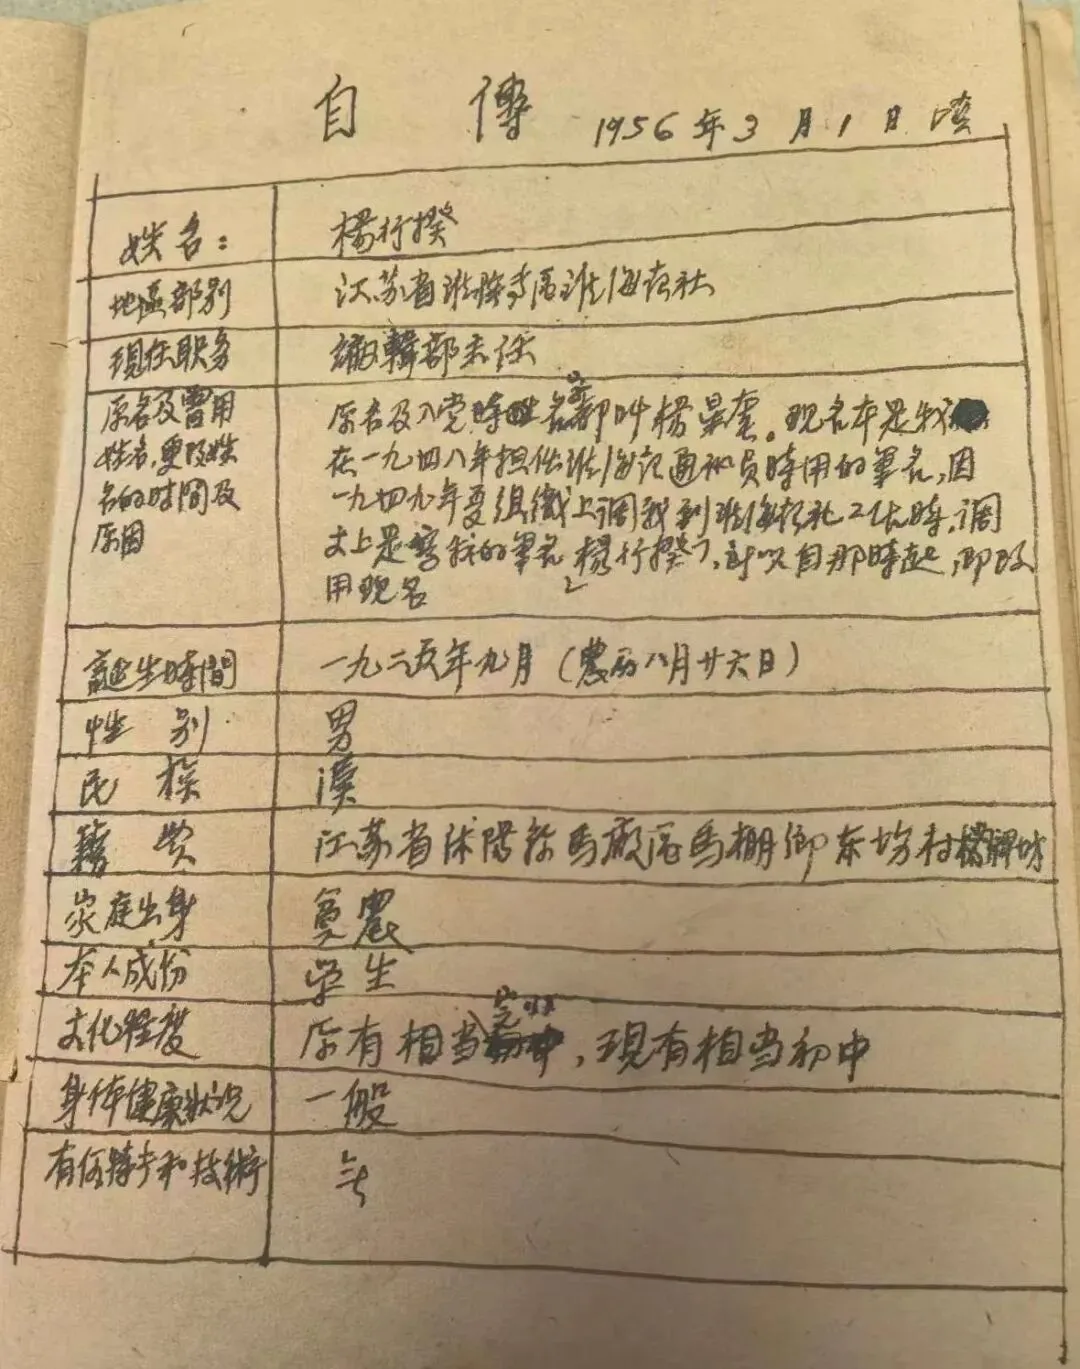 自 傳 1956年3月1日填
姓名： 楊行揆
地區部别 江苏省淮阴专区淮海农社
現任职务 編輯部主任
原名及曾用 原名及入党時姓名都叫楊杲奎。现名本是我
姓名，更改姓 在一九四八年担任淮海记通讯员時用的筆名，因
名的時間及 一九四九年要組織上调我到淮海报社工作時，调
原因 文上是寫我的筆名"楊行揆"，所以自那時起，即改
用现名
誕生時間 一九二五年九月（農历八月廿六日）
性 别 男
民 族 漢
籍 贯 江苏省沭陽縣馬廠區馬棚鄉东坊村
家庭出身 貧農
本人成份 学生
文化程度 原有相当完小，現有相当初中
身体健康狀况 一般
有何特长和技術 无